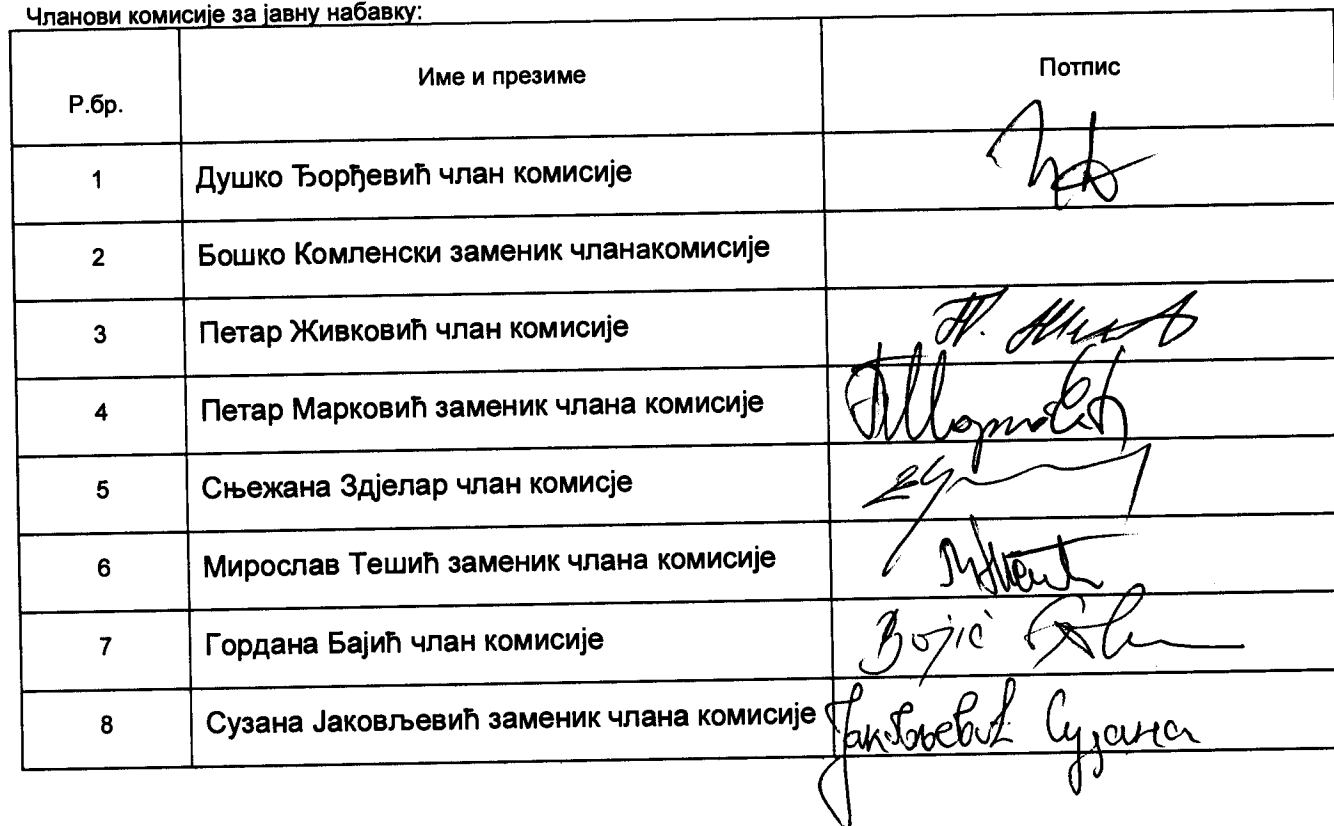 Чланови комисије за јавну набавку:
Р.бр. Име и презиме Потпис
1 Душко Ђорђевић члан комисије
2 Бошко Комленски заменик чланакомисије
3 Петар Живковић члан комисије
4 Петар Марковић заменик члана комисије
5 Сњежана Здјелар члан комисје
6 Мирослав Тешић заменик члана комисије
7 Гордана Бајић члан комисије
8 Сузана Јаковљевић заменик члана комисије Јаковљевић Сузана